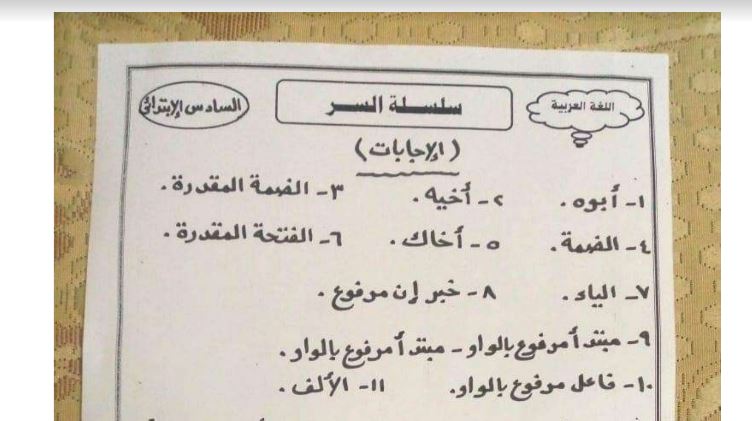 اللغة العربية
سلسلة السر
السادس الإبتدائى
(الإجابات)
١- أبوه. ٢- أخيه. ٣- الضمة المقدرة.
٤- الضمة. ٥- أخاك. ٦- الفتحة المقدرة.
٧- الياء. ٨- خبر إن مرفوع.
٩- مبتدأ مرفوع بالواو - مبتدأ مرفوع بالواو.
١٠- فاعل مرفوع بالواو. ١١- الألف.